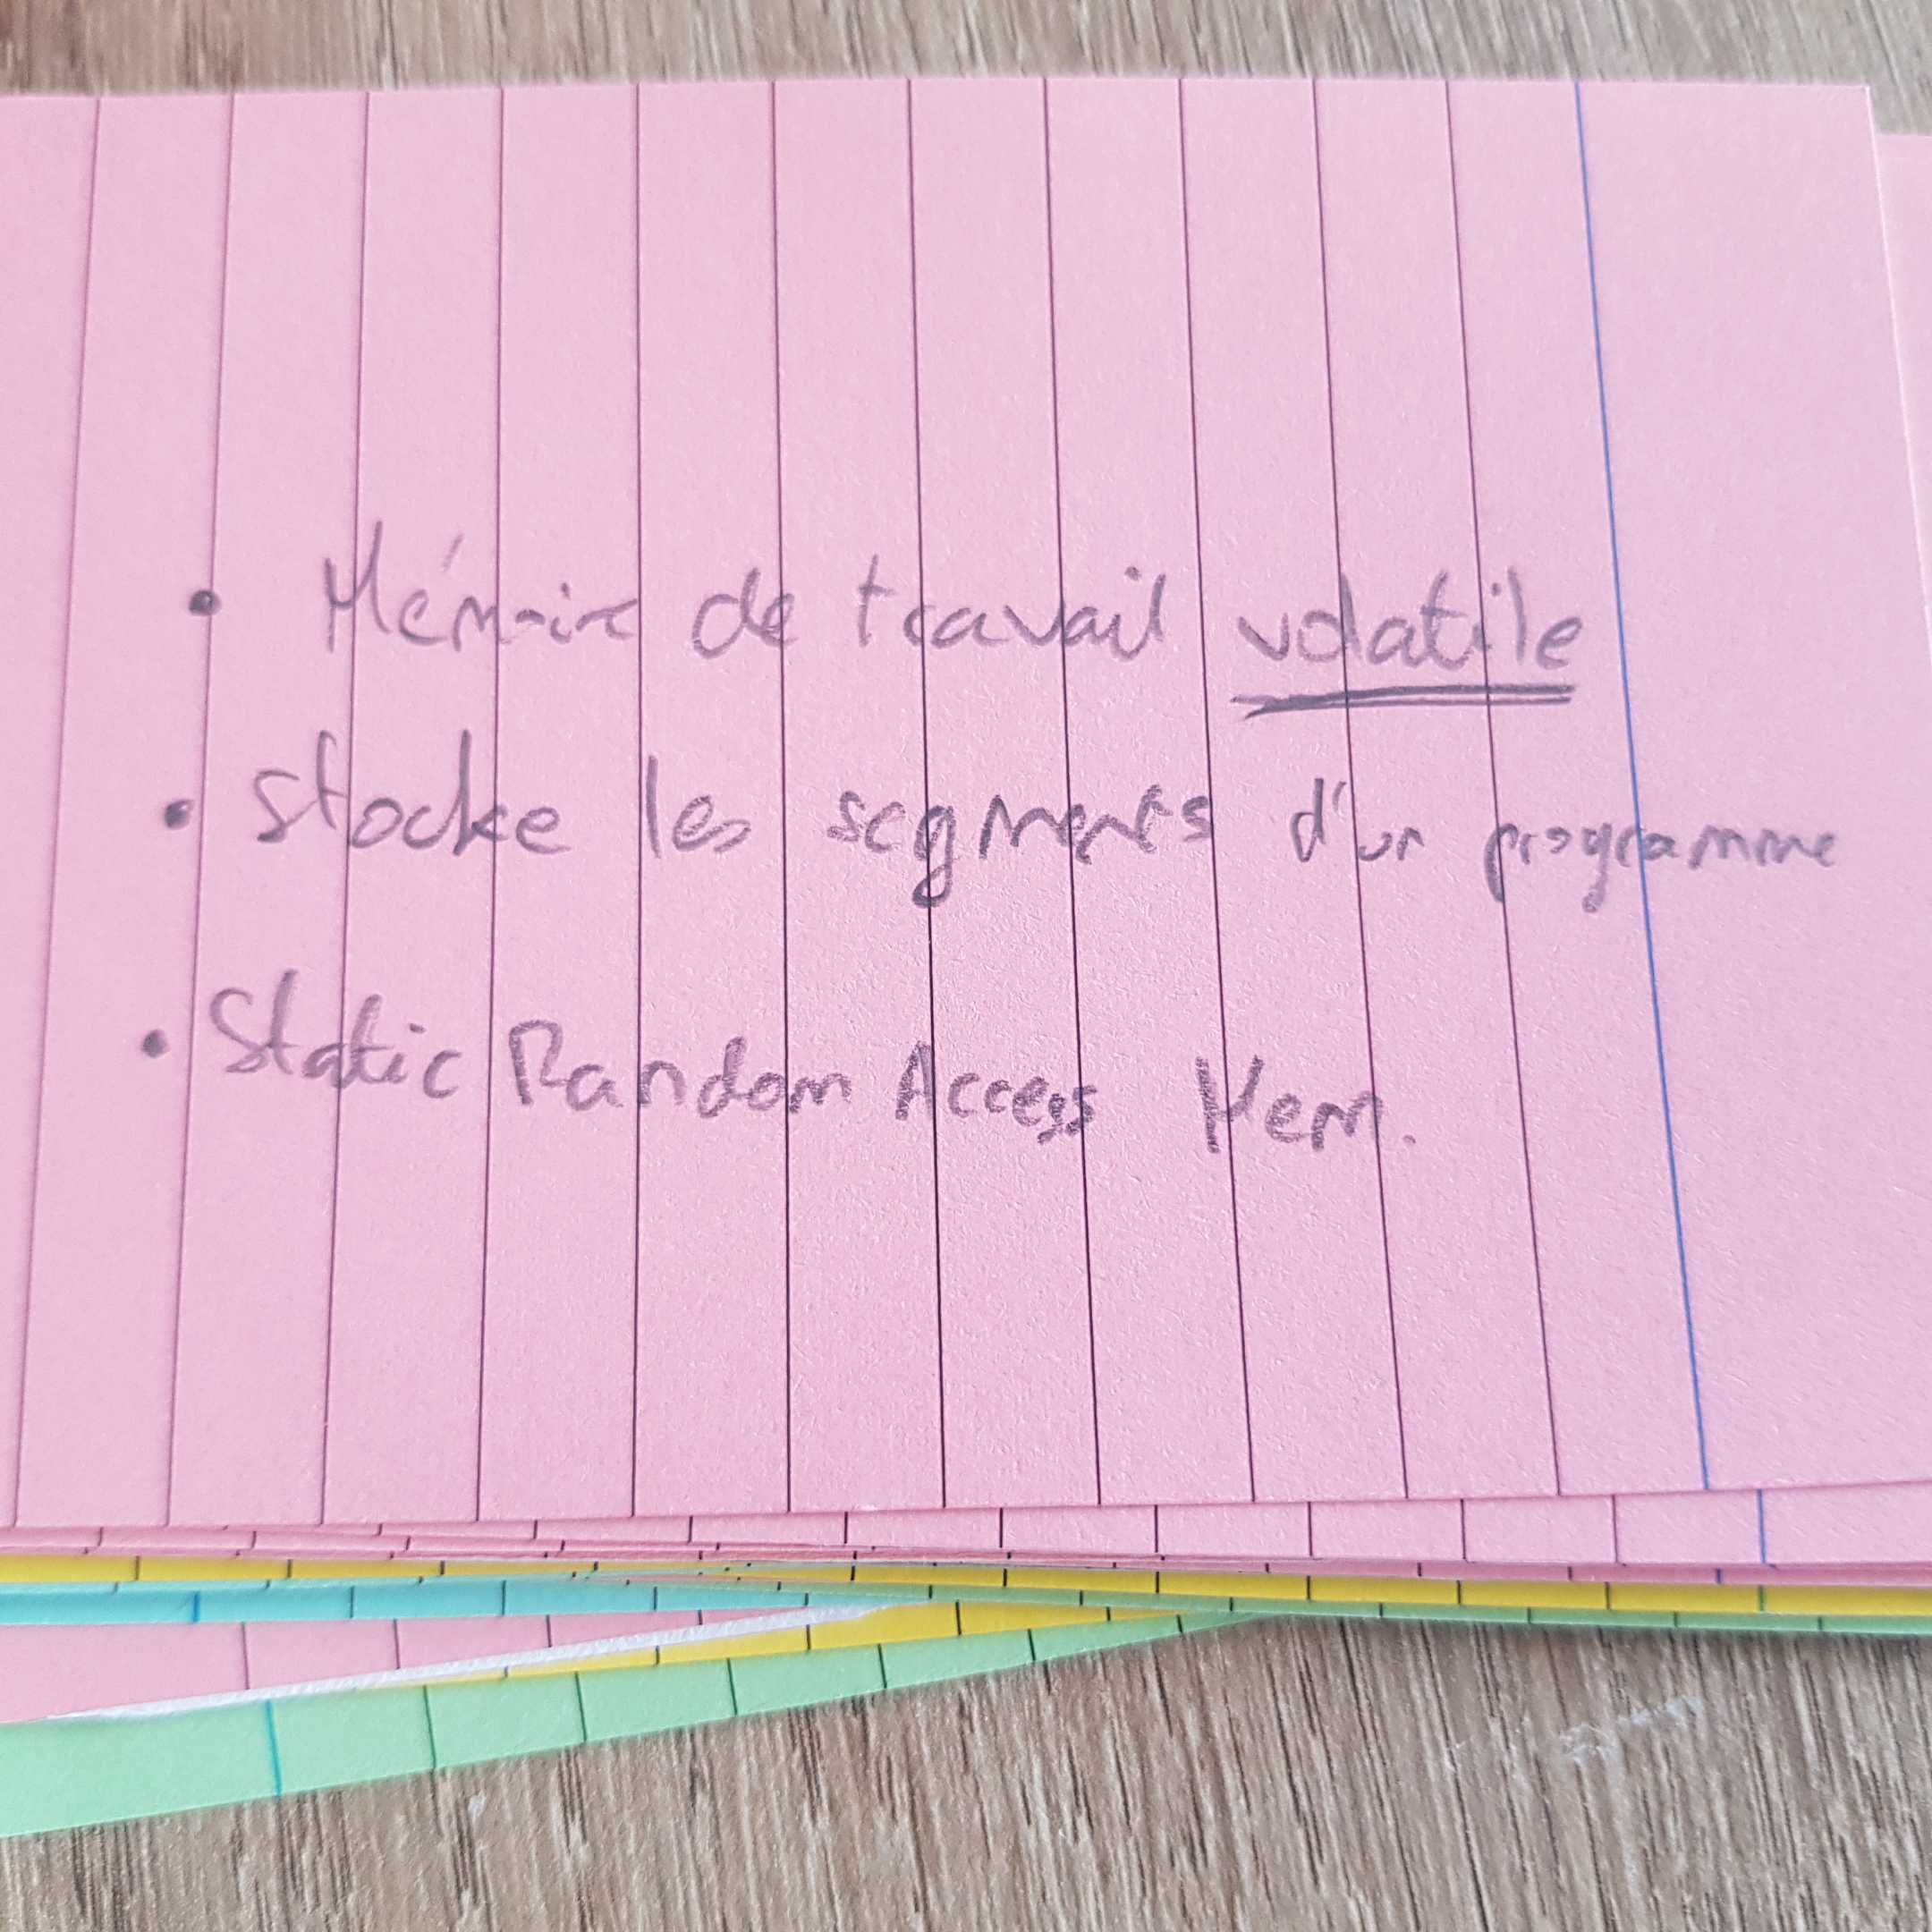 • Mémoire de travail volatile
• Stocke les segments d'un programme
• Static Random Access Mem.